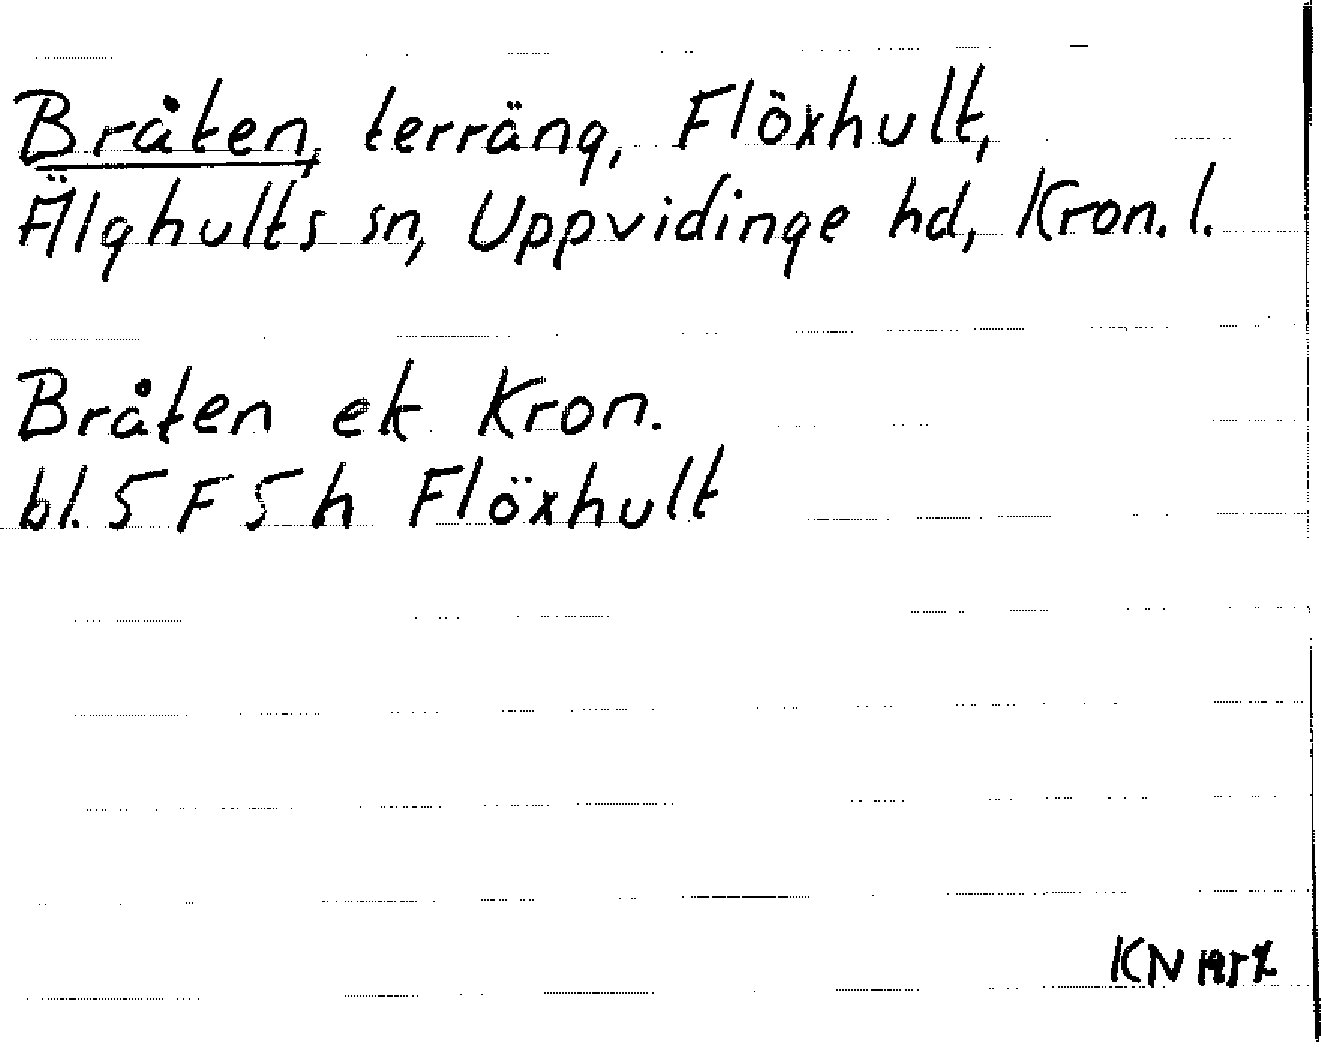 Bråten, terräng, Flöxhult,
Älghults sn, Uppvidinge hd, Kron. l.
Bråten ek Kron.
bl. 5 F 5 h Flöxhult
KN 1957